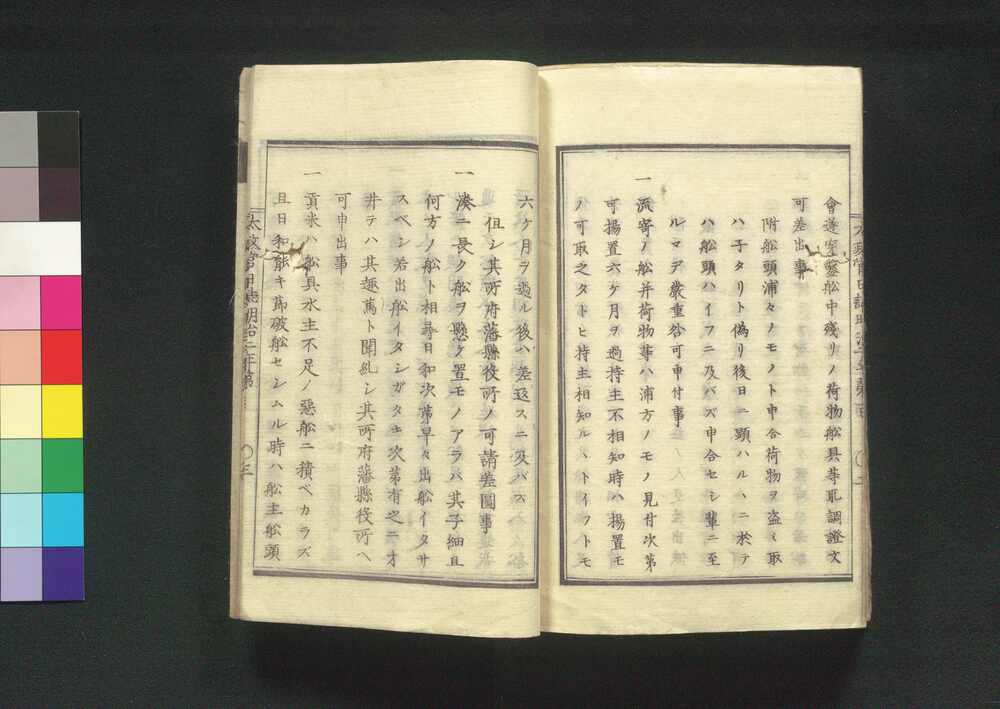 會遂穿鑿船中殘リノ荷物船具等取調證文
可差出事
附船頭浦々ノモノト申合荷物ヲ盗ミ取
ハ子タリト偽リ後日ニ顕ハルヽニ於テ
ハ船頭ハイフニ及バズ申合セシ輩ニ至
ルマデ嚴重咎可申付事
一
流寄ノ船并荷物等ハ浦方ノモノ見付次第
可揚置六ケ月ヲ過持主不相知時ハ揚置モ
ノ可取之タトヒ持主相知ルヽトイフトモ
六ケ月ヲ過ル後ハ差返スニ及バス
但シ其所府藩縣役所ノ可請差圖事
一
湊ニ長ク船ヲ懸ケ置モノアラバ其子細且
何方ノ船ト相尋日和次第早々出船イタサ
スベシ若出船イタシガタキ次第有之ニオ
井テハ其趣篤ト聞糺シ其所府藩縣役所ヘ
可申出事
一
貢米ハ船具水主不足ノ惡船ニ積ベカラズ
且日和能キ節破船セシムル時ハ船主船頭
太政官日誌明治二年第
〇三